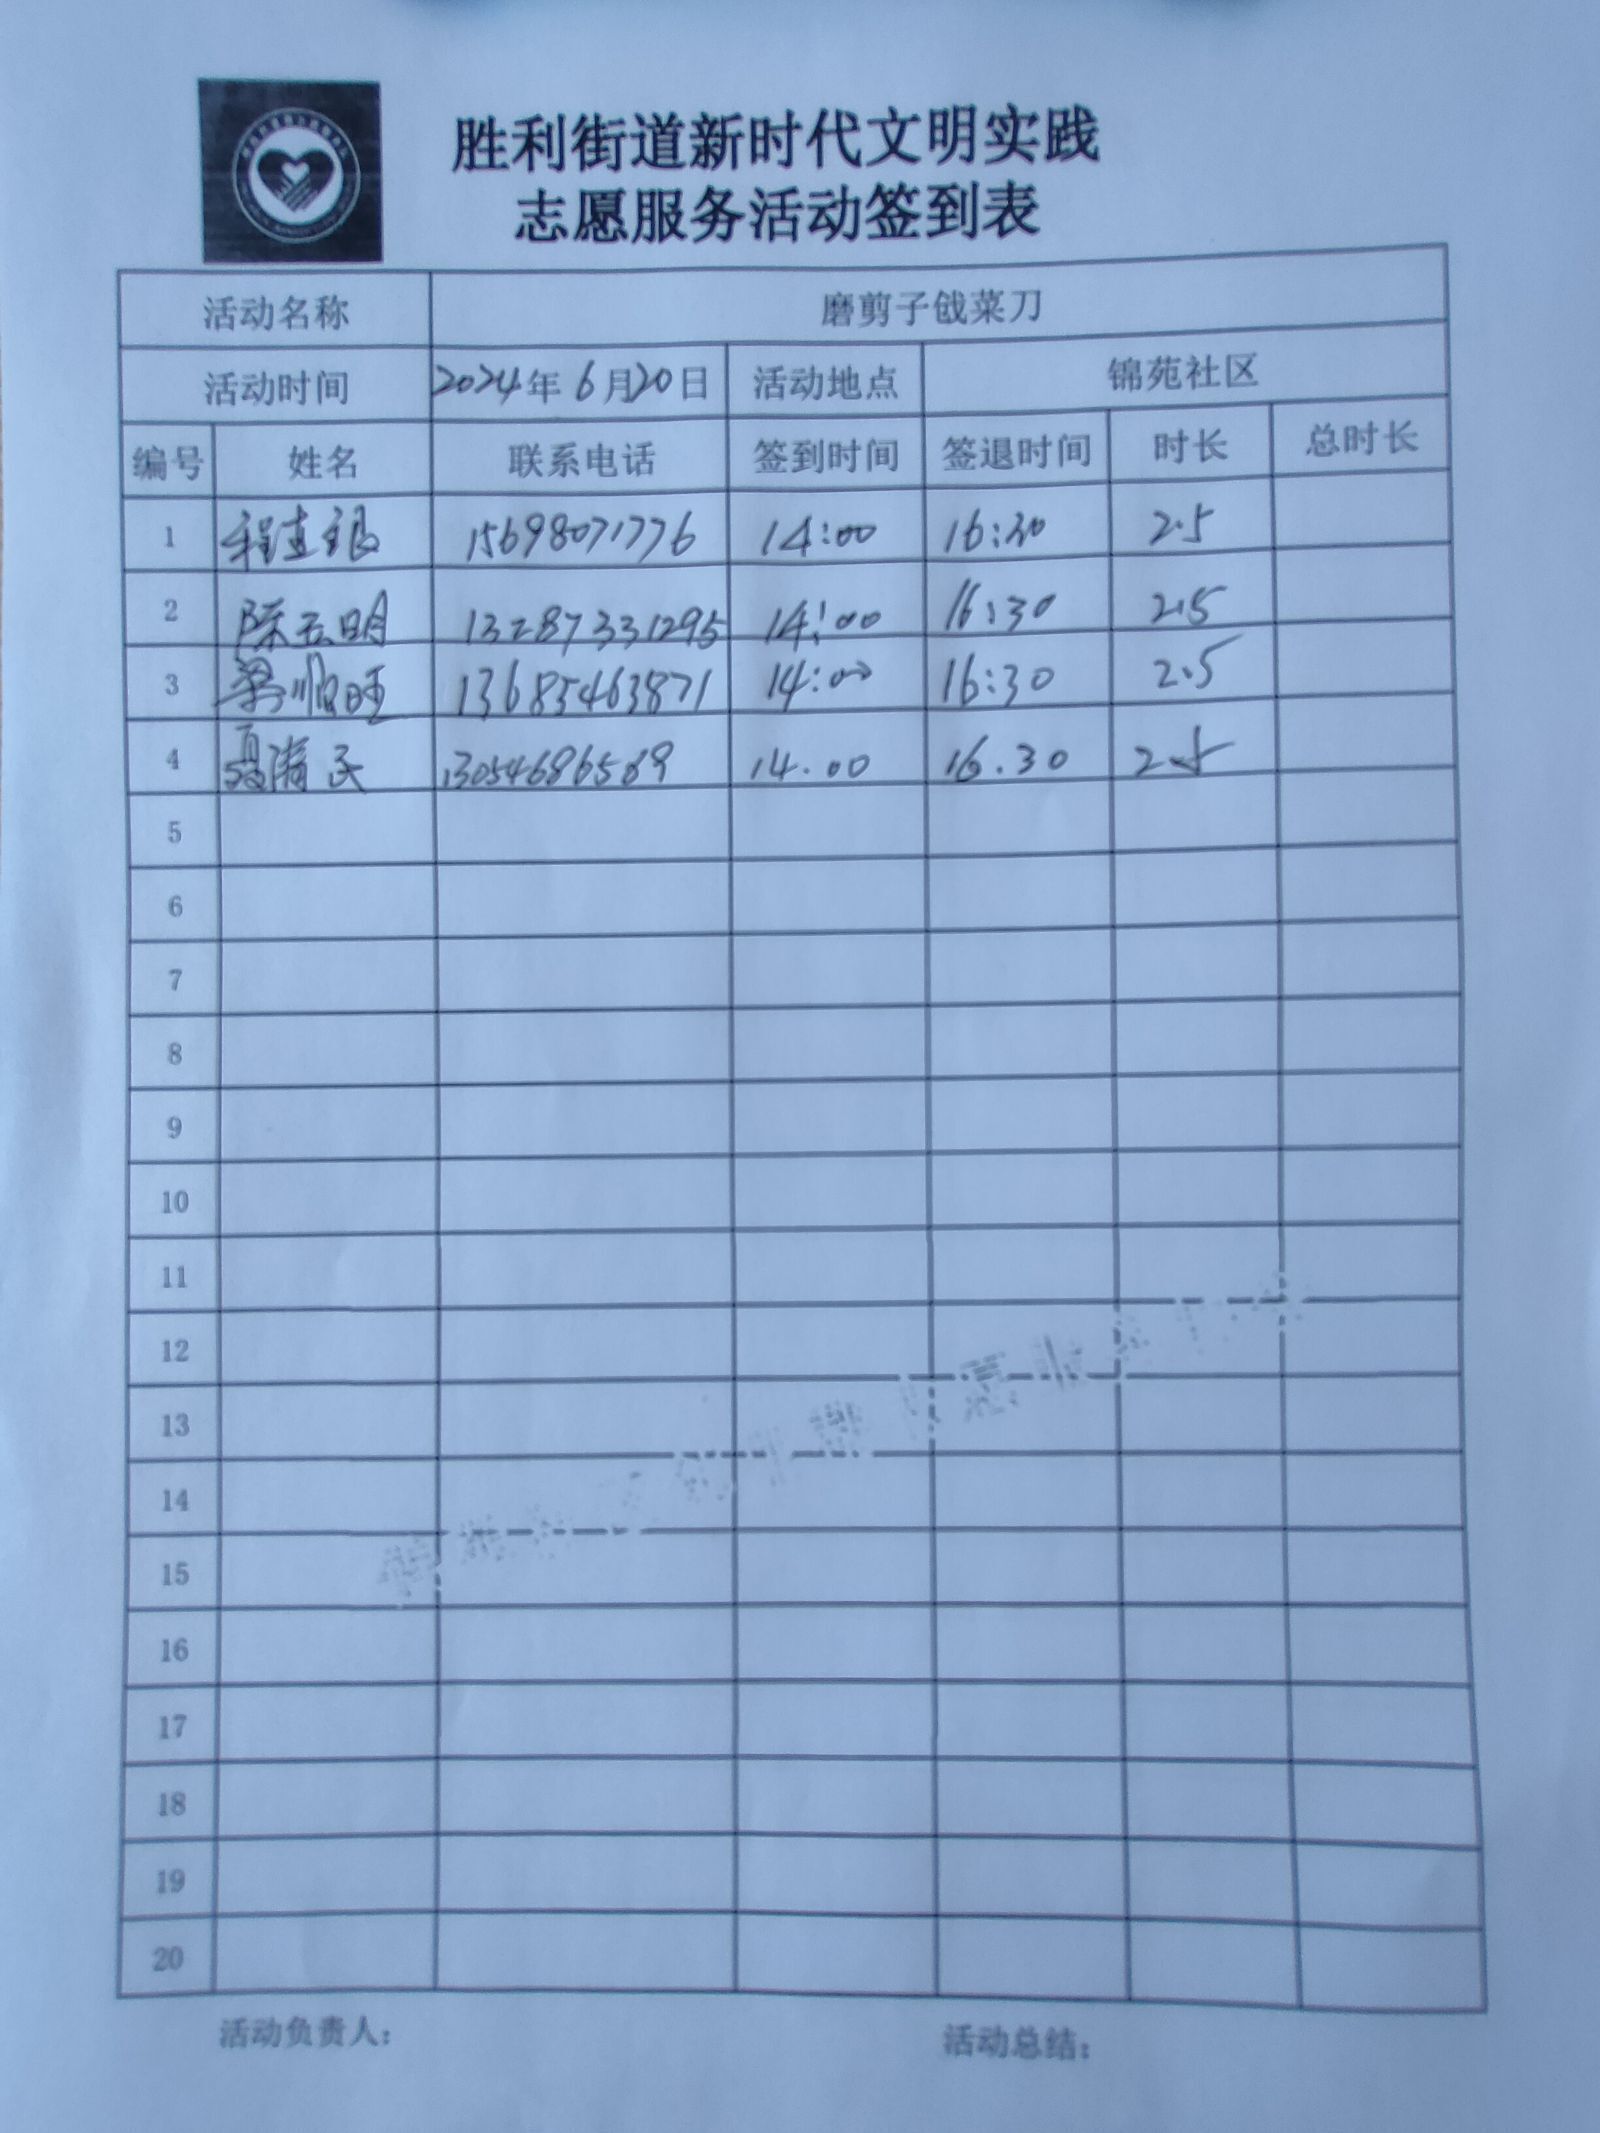 胜利街道新时代文明实践
志愿服务活动签到表
活动名称 磨剪子戗菜刀
活动时间 2024年6月20日 活动地点 锦苑社区
编号 姓名 联系电话 签到时间 签退时间 时长 总时长
1 15698071776 14:00 16:30 2.5
2 陈玉明 13287331295 14:00 16:30 2.5
3 13685463871 14:00 16:30 2.5
4 聂清天 13054686569 14.00 16.30 2.5
5
6
7
8
9
10
11
12
13
14
15
16
17
18
19
20
活动负责人: 活动总结: